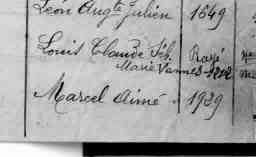 Léon Augte Julien 1849
Louis Claude Séb. Rayé
Marie Vannes
Marcel Aimé 1929